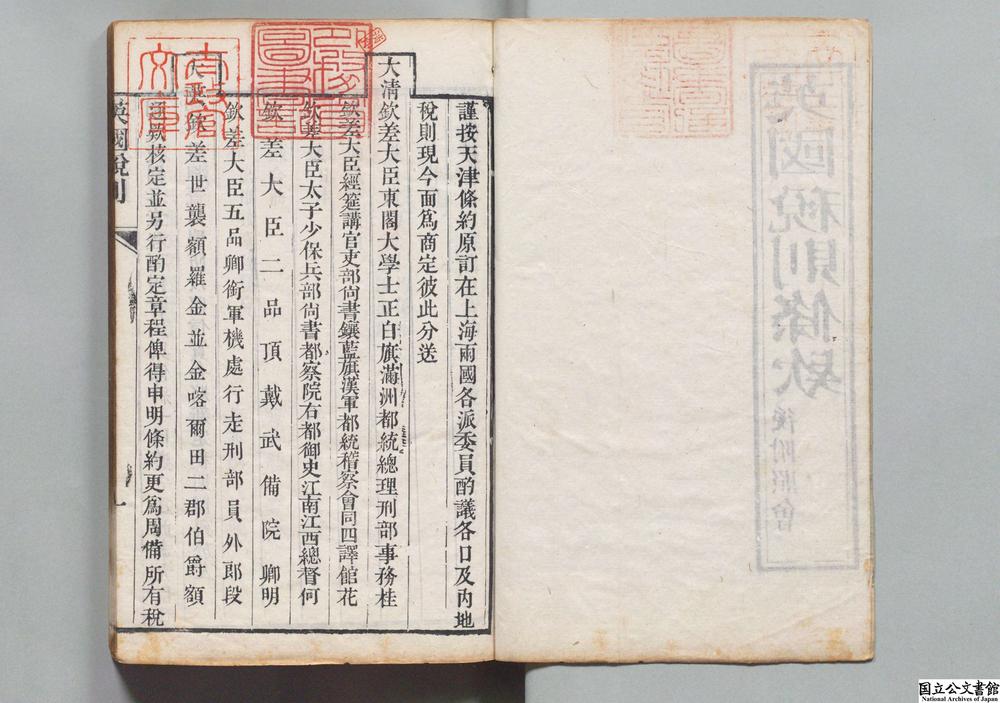 英國稅則條款
後附照會
謹按天津條約原訂在上海兩國各派委員酌議各口及內地
稅則現今面爲商定彼此分送
大清欽差大臣東閣大學士正白旗滿洲都統總理刑部事務桂
欽差大臣經筵講官吏部尙書鑲藍旗漢軍都統稽察會同四譯館花
欽差大臣太子少保兵部尙書都察院右都御史江南江西總督何
欽差大臣二品頂戴武備院卿明
欽差大臣五品卿銜軍機處行走刑部員外郎段
大英欽差世襲額羅金並金喀爾田二郡伯爵額
逐款核定並另行酌定章程俾得申明條約更爲周備所有稅
英國稅則
一
国立公文書館
National Archives of Japan